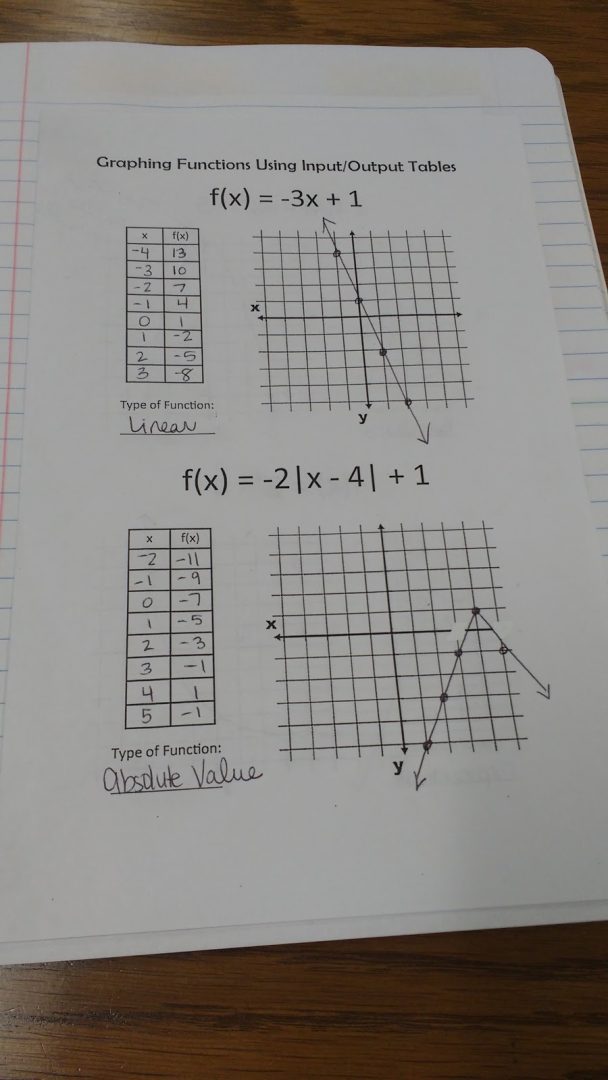 Graphing Functions Using Input/Output Tables
f(x) = -3x + 1
x f(x)
-4 13
-3 10
-2 7
-1 4
0 1
1 -2
2 -5
3 -8
x
y
Type of Function:
Linear
f(x) = -2|x - 4| + 1
x f(x)
-2 -11
-1 -9
0 -7
1 -5
2 -3
3 -1
4 1
5 -1
x
y
Type of Function:
Absolute Value